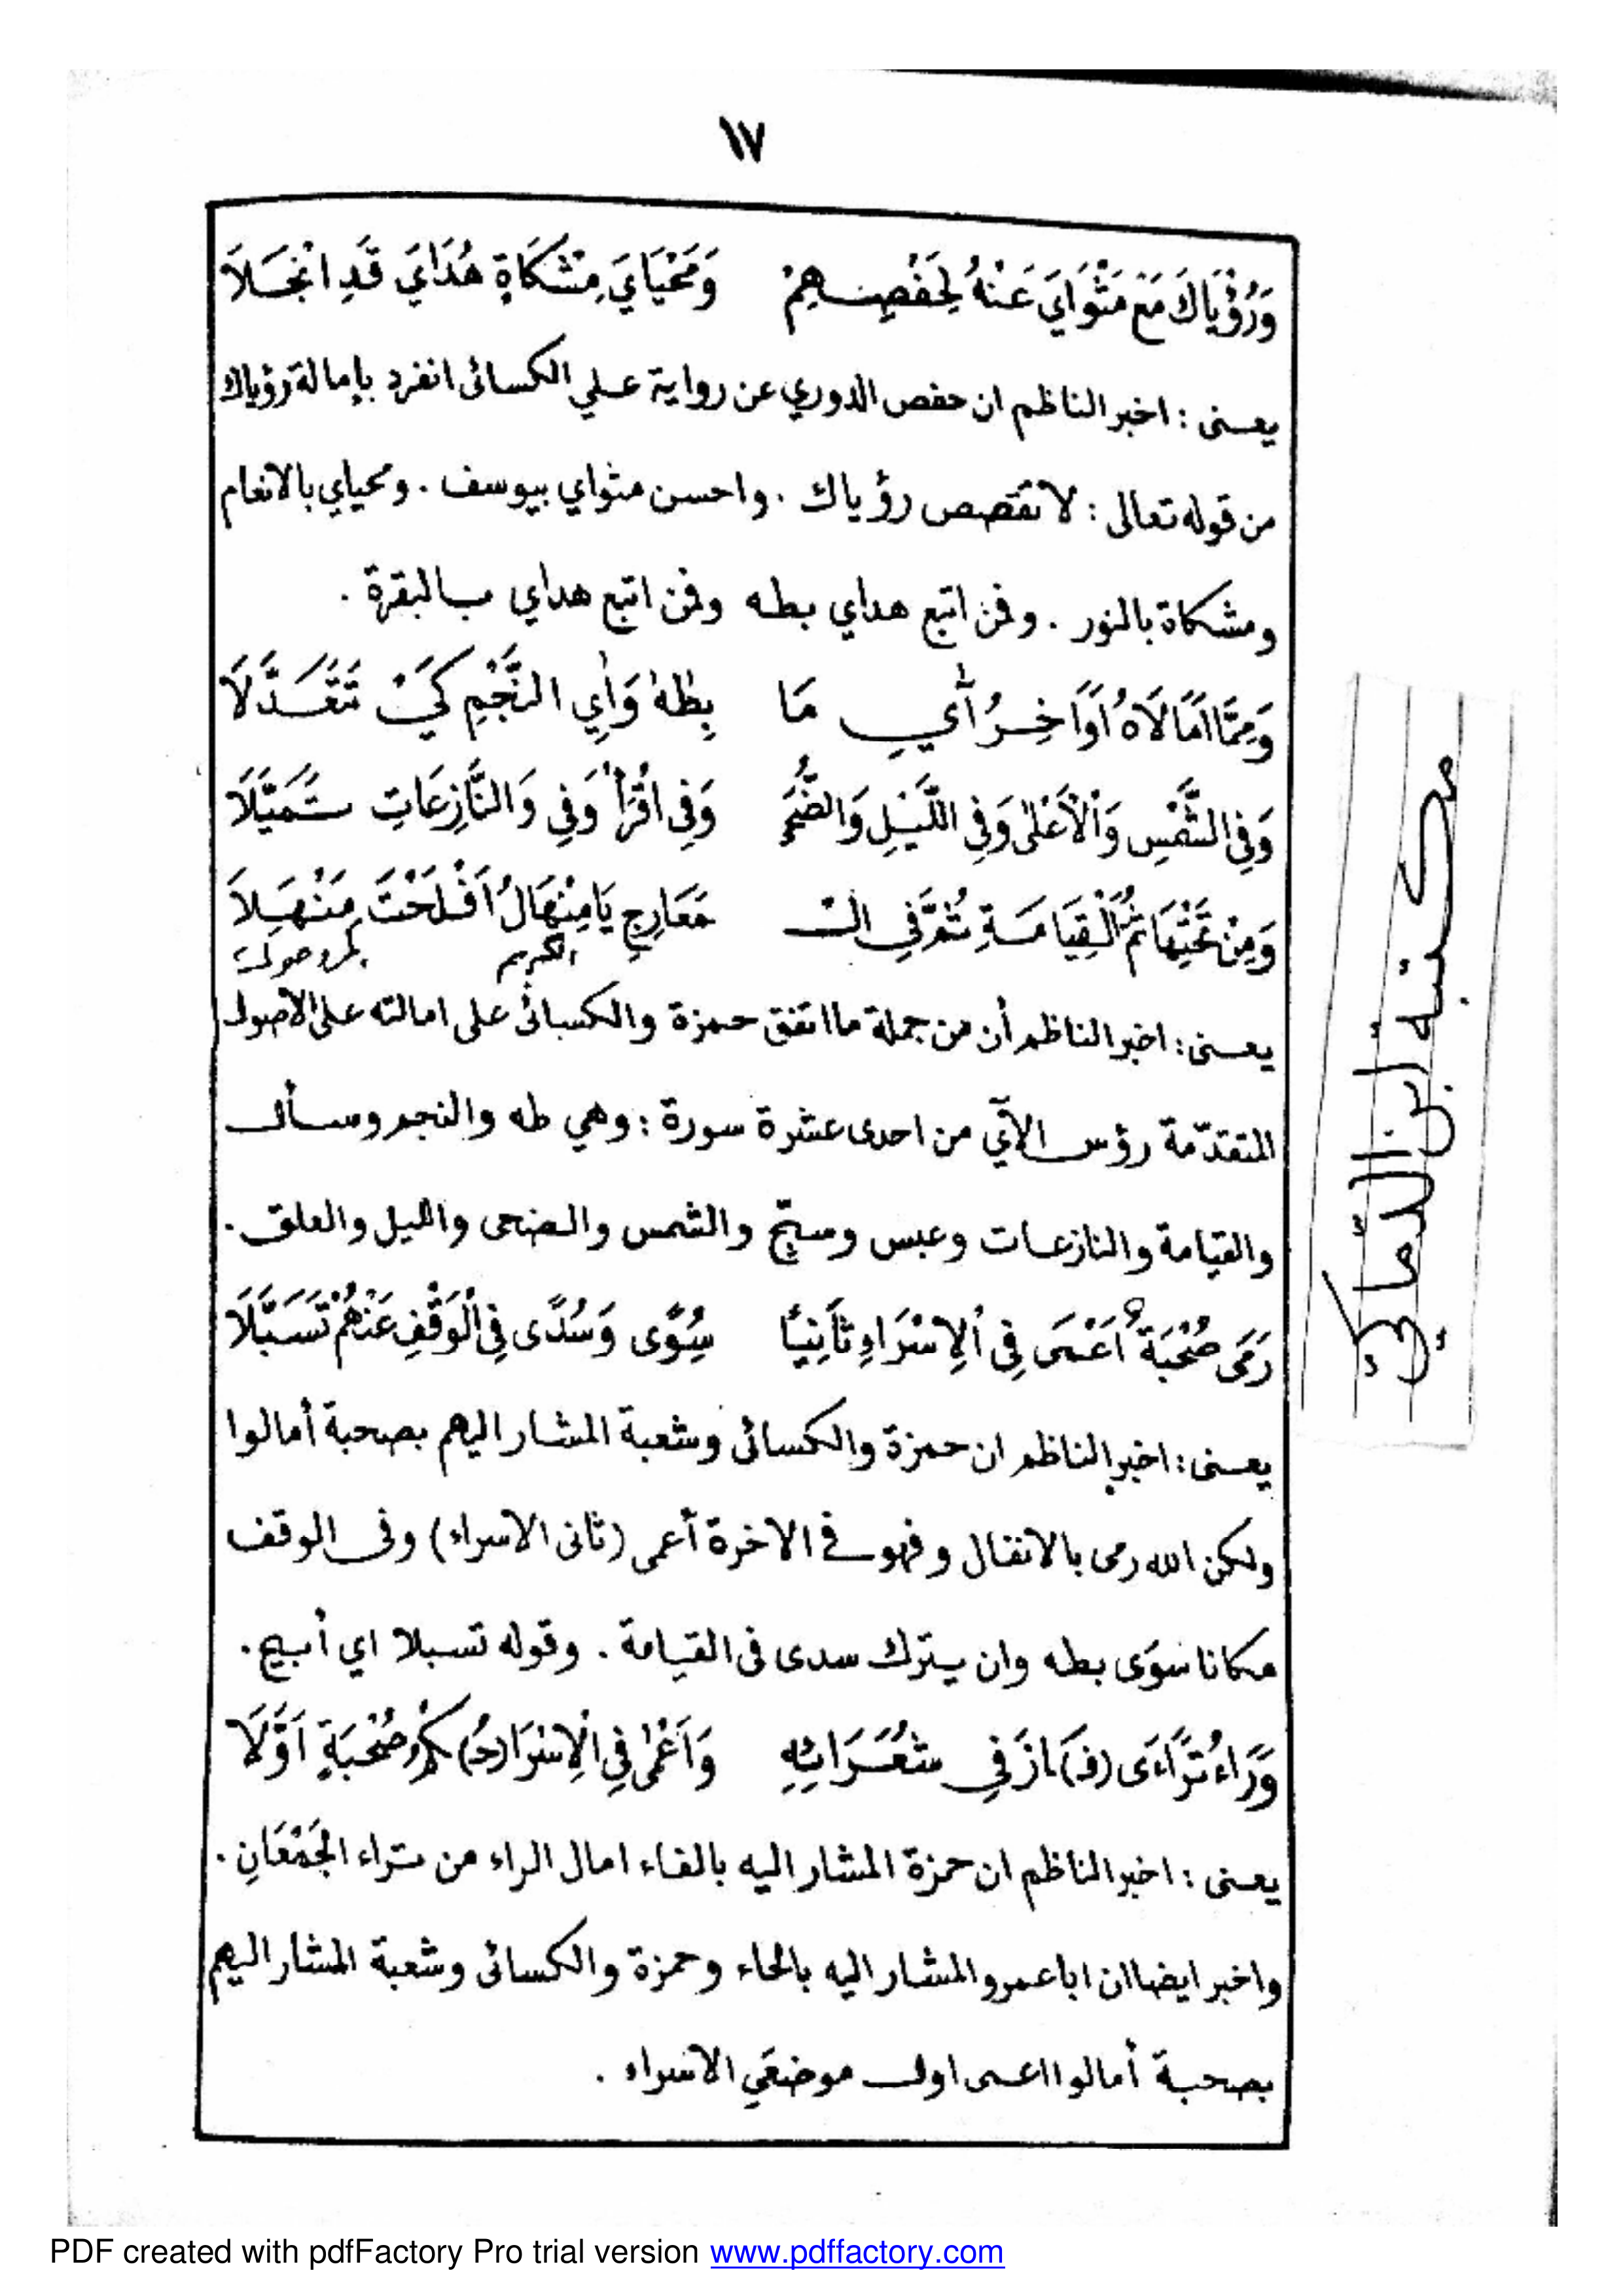 ١٧
وَرُؤْيَاكَ مَعْ مَثْوَايَ عَنْهُ لِحَفْصِهِمْ وَمَحْيَايَ مِشْكَاةٍ هُدَايَ قَدِ انْجَلَا
يعنى : اخبر الناظم ان حفص الدوري عن رواية علي الكسائى انفرد بإمالة رؤياك
من قوله تعالى : لا تقصص رؤياك . واحسن مثواي بيوسف . ومحياي بالانعام
ومشكاة بالنور . وفمن اتبع هداي بطه وفمن اتبع هداي بالبقرة .
وَمِمَّا امَالَاهُ اَوَاخِرُ آيِ مَا بِطٰهٰ وَاٰيِ النَّجْمِ كَيْ تَتَعَدَّلَا
وَفِى الشَّمْسِ وَالْاَعْلٰى وَفِى اللَّيْلِ وَالضُّحَى وَفِى اقْرَأْ وَفِى وَالنَّازِعَاتِ تَمَيَّلَا
وَمِنْ تَحْتِهَا ثُمَّ الْقِيَامَةِ ثُمَّ فِى الْـ مَعَارِجِ يَا مِنْهَالُ اَفْلَحْتَ مِنْهَلَا
الكريم
يعنى : اخبر الناظم أن من جملة ما اتفق حمزة والكسائى على امالته على الاصول
المتقدّمة رؤس الآي من احدى عشرة سورة : وهي طه والنجم وسأل
والقيامة والنازعات وعبس وسبّح والشمس والضحى والليل والعلق .
رَمَى صُحْبَةٌ اَعْمَى فِى الِاسْرَاءِ ثَانِيًا سُوًى وَسُدًى فِى الْوَقْفِ عَنْهُمْ تَسَبَّلَا
يعنى : اخبر الناظم ان حمزة والكسائى وشعبة المشار اليهم بصحبة أمالوا
ولكن الله رمى بالانفال وفهو فى الاخرة أعمى (ثانى الاسراء) وفى الوقف
مكانا سوًى بطه وان يترك سدى فى القيامة . وقوله تسبلا اي أبيح .
وَرَاءُ تَرَاءَى (فَـ)ـازَ فِى شُعَرَائِهِ وَاَعْمٰى فِى الِاسْرَا (حُـ)ـكْمُ صُحْبَةٍ اَوَّلَا
يعنى : اخبر الناظم ان حمزة المشار اليه بالفاء امال الراء من تراء الجَمْعَانِ .
واخبر ايضا ان ابا عمرو المشار اليه بالحاء وحمزة والكسائى وشعبة المشار اليهم
بصحبة أمالوا اعمى اول موضعَي الاسراء .
مكتبة ابن الدّماكيّ
PDF created with pdfFactory Pro trial version www.pdffactory.com